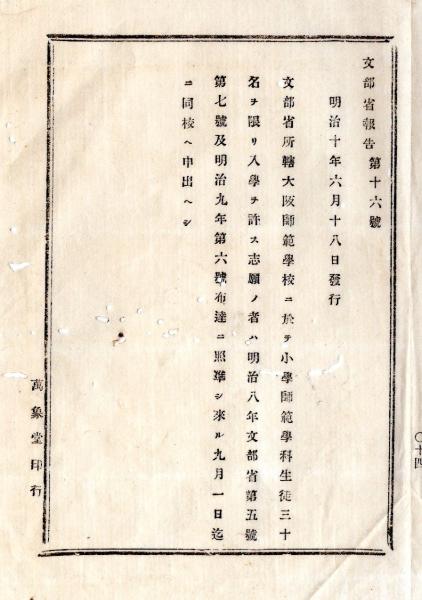 文部省報告第十六號
明治十年六月十八日發行
文部省所轄大阪師範學校ニ於テ小學師範學科生徒三十
名ヲ限リ入學ヲ許ス志願ノ者ハ明治八年文部省第五號
第七號及明治九年第六號布達ニ照準シ來ル九月一日迄
ニ同校ヘ申出ヘシ
萬象堂印行
〇十四